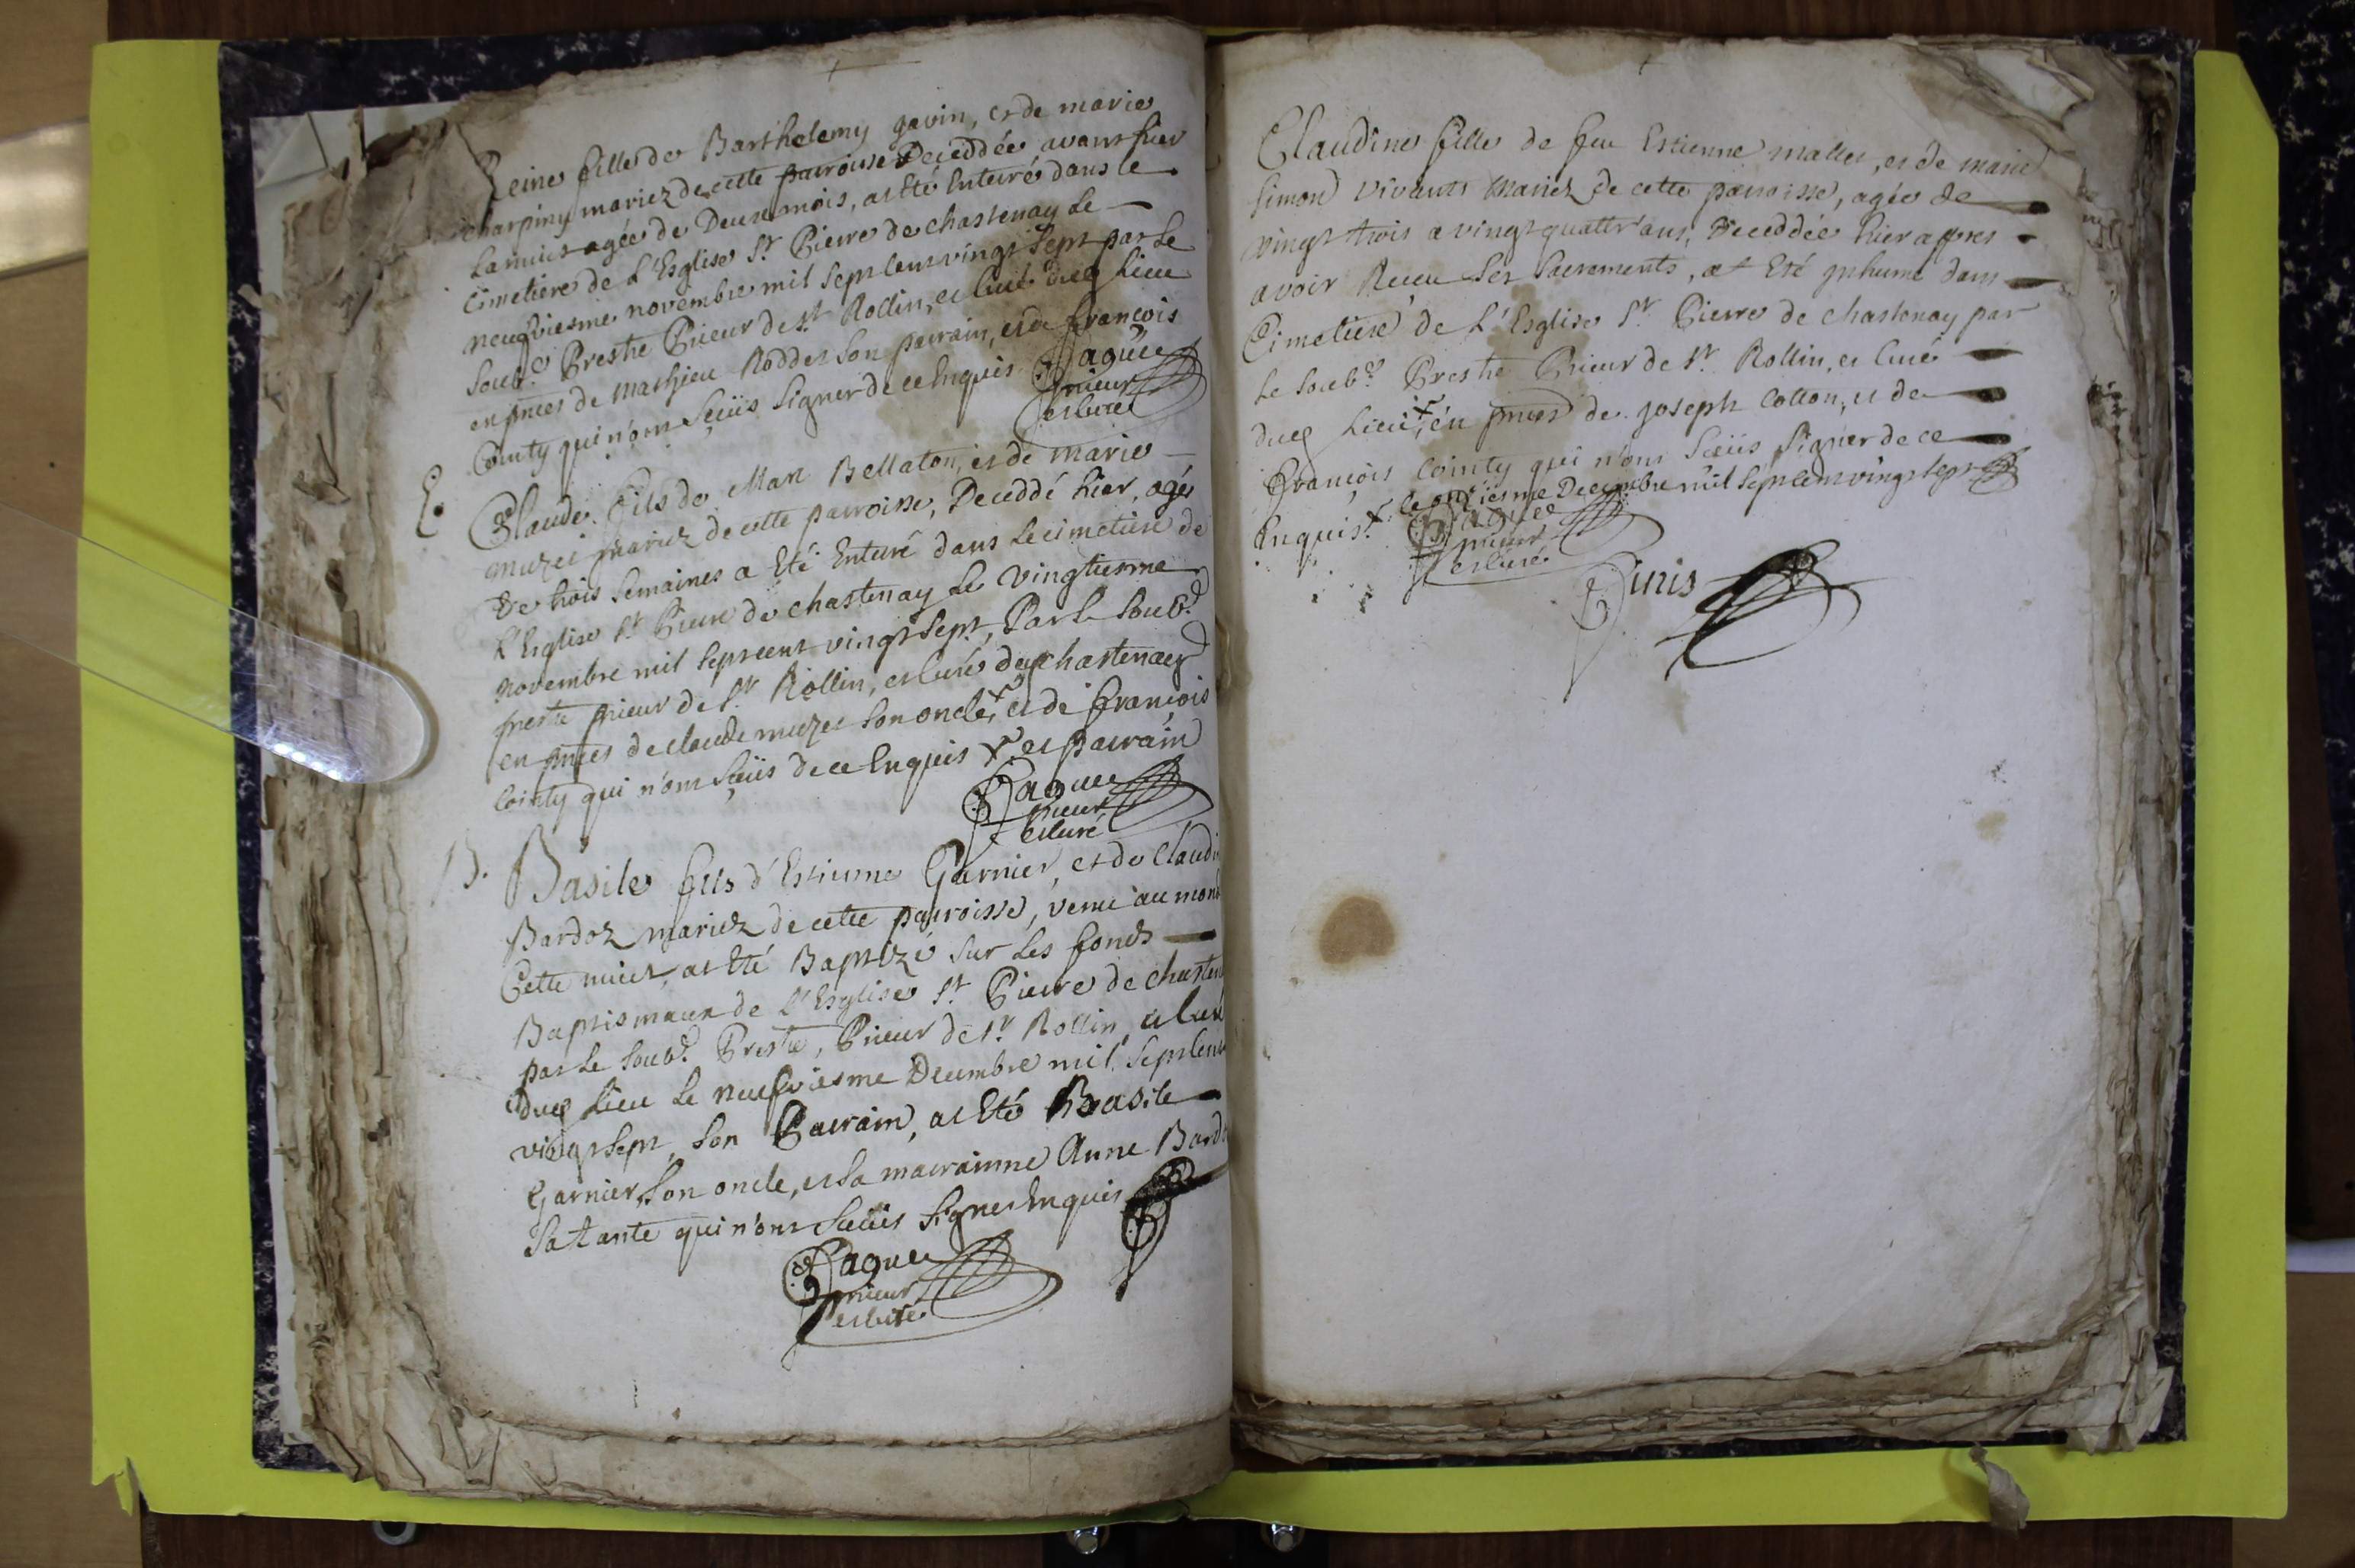 Reine fille de Barthelemy gavin, et de marie
charpiny mariez de cette parroisse Deceddée avant hier
la nuict agée de Deux mois, at Eté Enterré dans le
cimetiere de L'Esglise St. Pierre de chastenay Le
neufviesme novembre mil sept cent vingt sept par Le
soubd. Prestre Prieur de St. Rollin, et Curé dud lieu
en pnces de Mathieu Roddet son parrain, et de françois
Cointy qui n'ont sceüs signer de ce Enquis Paguee
prieur
et curé
E.
Claude fils de Marc Bellaton, et de Marie
muzet mariez de cette parroisse, Deceddé hier, agés
De trois semaines a Eté Enterré dans le cimetiere de
L'Esglise St. Pierre de chastenay Le vingtiesme
novembre mil sept cent vingt sept, Par le soubd.
prestre prieur de St. Rollin, et Curé de chastenay
en pnces de claude muzet son oncle, x et de françois
Cointy qui n'ont sceüs de ce Enquis x et parrain
Paguee
prieur
et curé
B.
Basile fils d'Estienne Garnier, et de Claudi
Bardoz mariez de cette parroisse, venu au mond
Cette nuict, at Eté Baptizé sur les fonds
Baptismaux de L'Esglise St. Pierre de chasten
par Le soubd. Prestre, Prieur de St. Rollin, et Curé
Dud Lieu Le neufviesme Decembre mil sept cent
vingt sept, son Parrain, at Eté Basile
Garnier son oncle, et sa marrainne Anne Bardo
sa tante qui n'ont sceüs signer Enquis
Paguee
prieur
et curé
Claudine fille de feu Estienne mallet, et de marie
simon vivants Mariez de cette parroisse, agée de
vingt trois a vingt quattr' ans, Deceddée hier appres
avoir Receu ses sacrements, at Eté inhumé dans
Cimetiere de L'Esglise St. Pierre de chastenay par
Le soubd. Prestre Prieur de St. Rollin, et Curé
dud Lieu, x en pnces de joseph Cotton, et de
François Cointy qui n'ont sceüs signer de ce
Enquis. x le onziesme Decembre mil sept cent vingt sept
Paguee
prieur
et curé
Finis